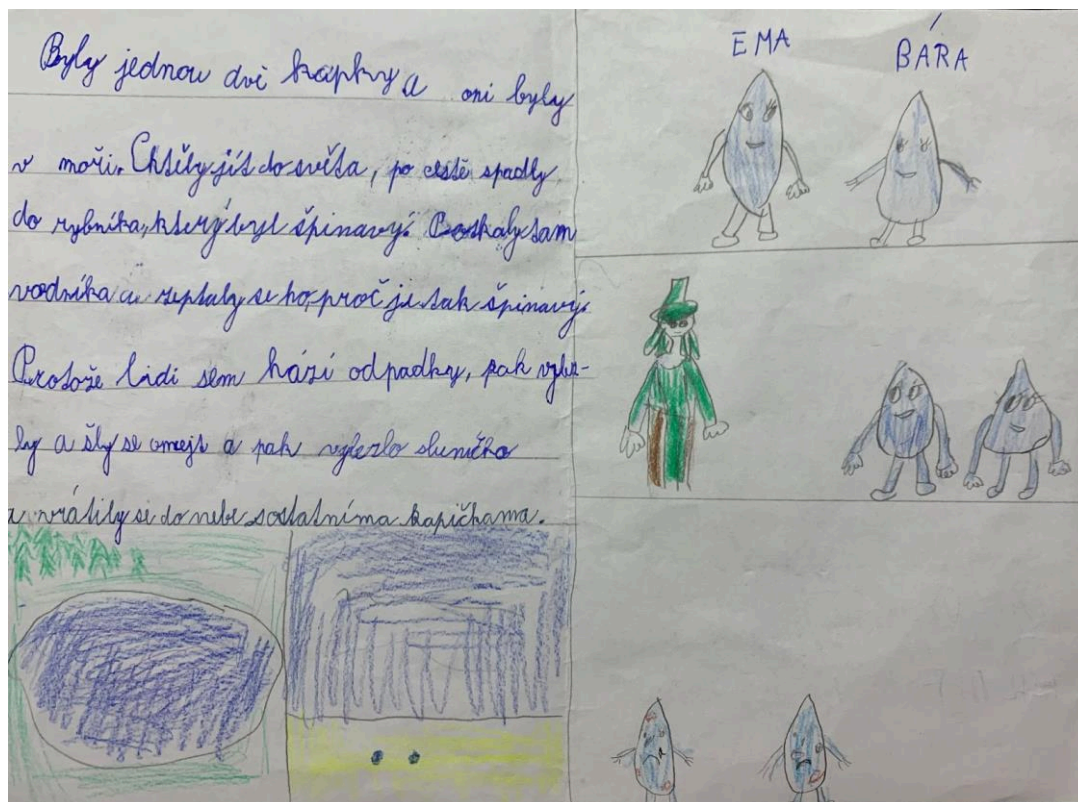 Byly jednou dvě kapky a oni byly
v moři. Chtěly jít do světa, po cestě spadly
do rybníka, který byl špinavý. Potkaly tam
vodníka a zeptaly se ho, proč je tak špinavý.
Protože lidi sem hází odpadky, pak vylez-
ly a šly se omejt a pak vylezlo sluníčko
a vrátily se do nebe s ostatníma kapičkama.
EMA
BÁRA